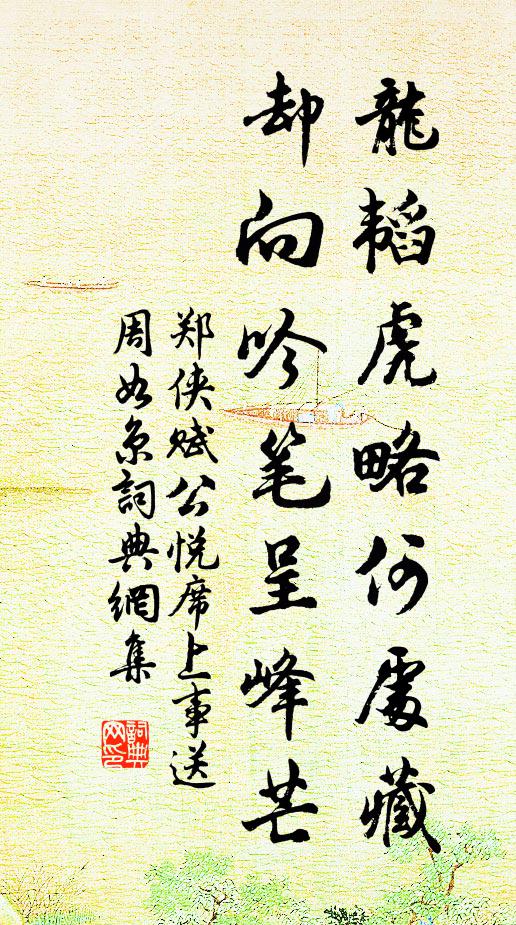 龍韬虎略何處藏
却向吟笔呈峰芒
郑侠赋公悦席上事送
周如京詞典網集
詞典
网印